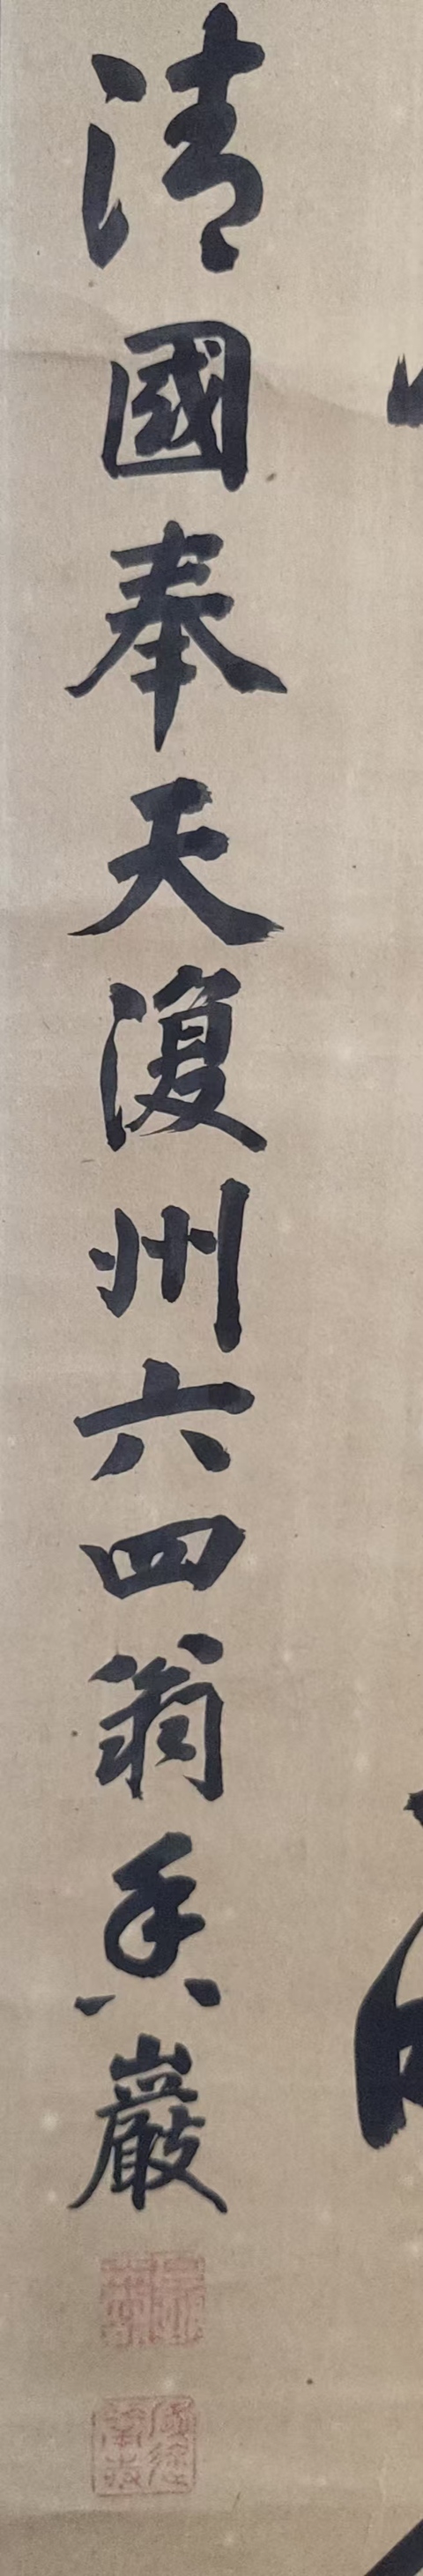 清國奉天復州六四翁香巖